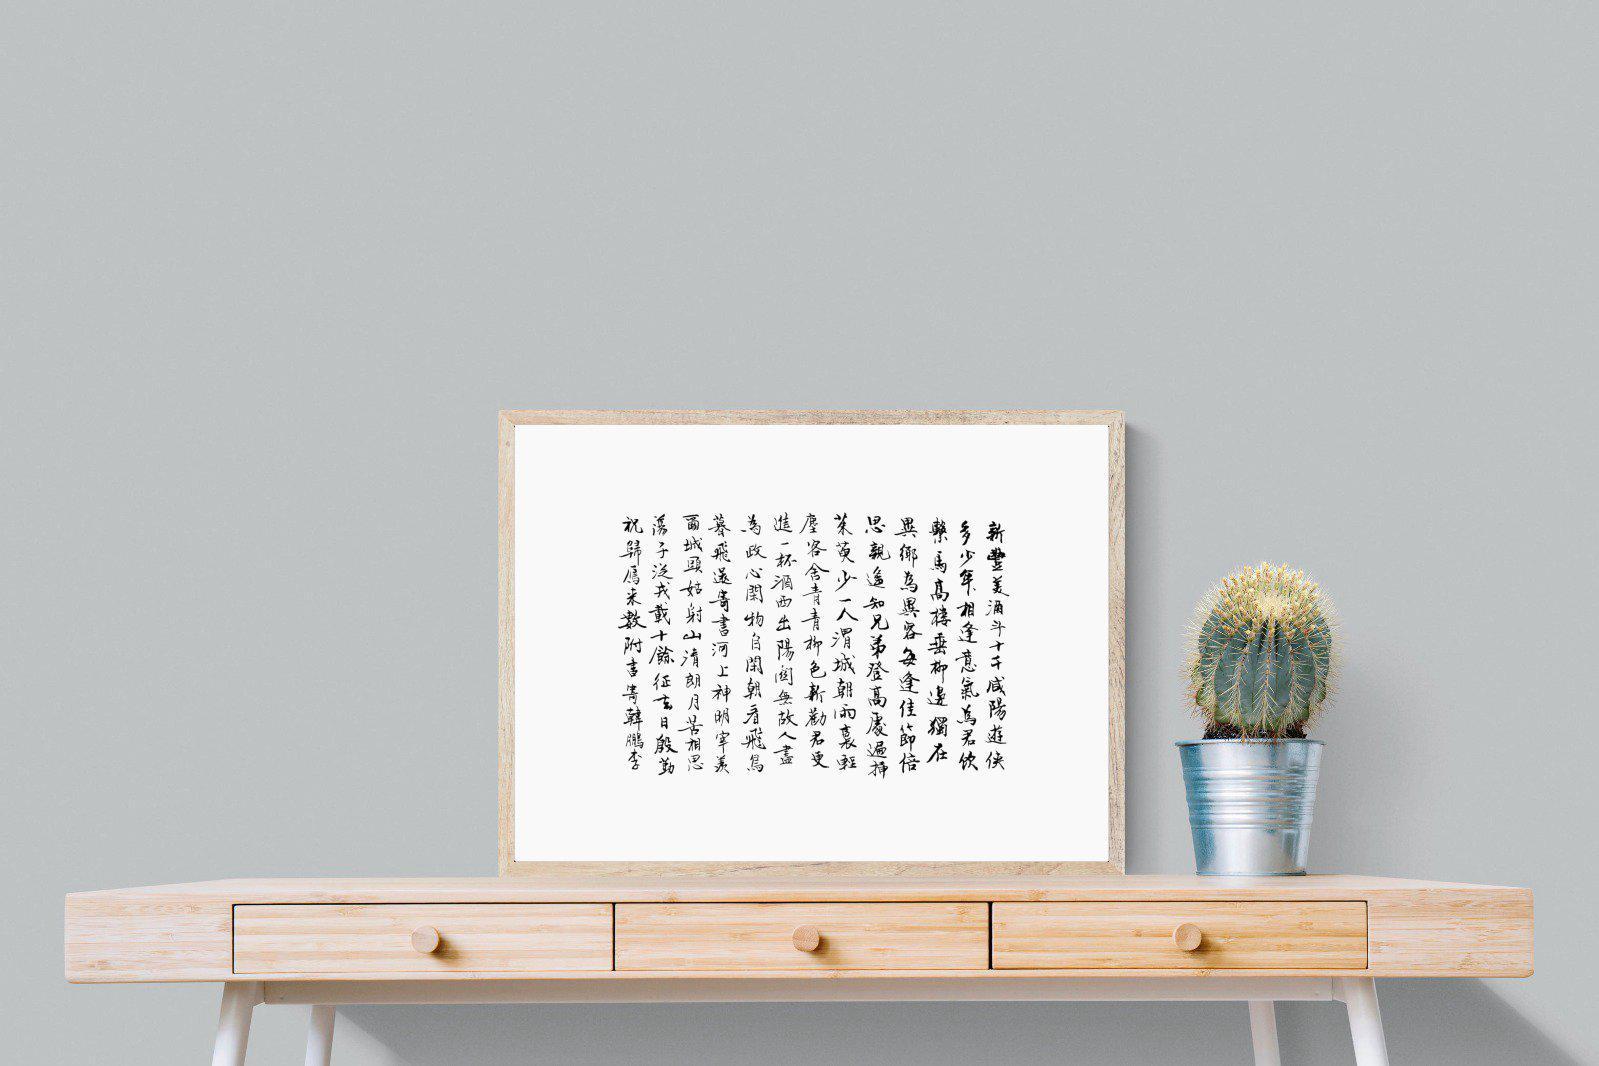 新豐美酒斗十千咸陽遊俠
多少年相逢意氣為君飲
繫馬高樓垂柳邊獨在
異鄉為異客每逢佳節倍
思親遙知兄弟登高處遍插
茱萸少一人渭城朝雨裛輕
塵客舍青青柳色新勸君更
進一杯酒西出陽関無故人盡
為政心閑物自閑朝看飛鳥
暮飛還寄書河上神明宰羨
爾城頭姑射山清朗月苦相思
蕩子從戎載十餘征去日殷勤
祝歸雁来數附書寄韓鵬李